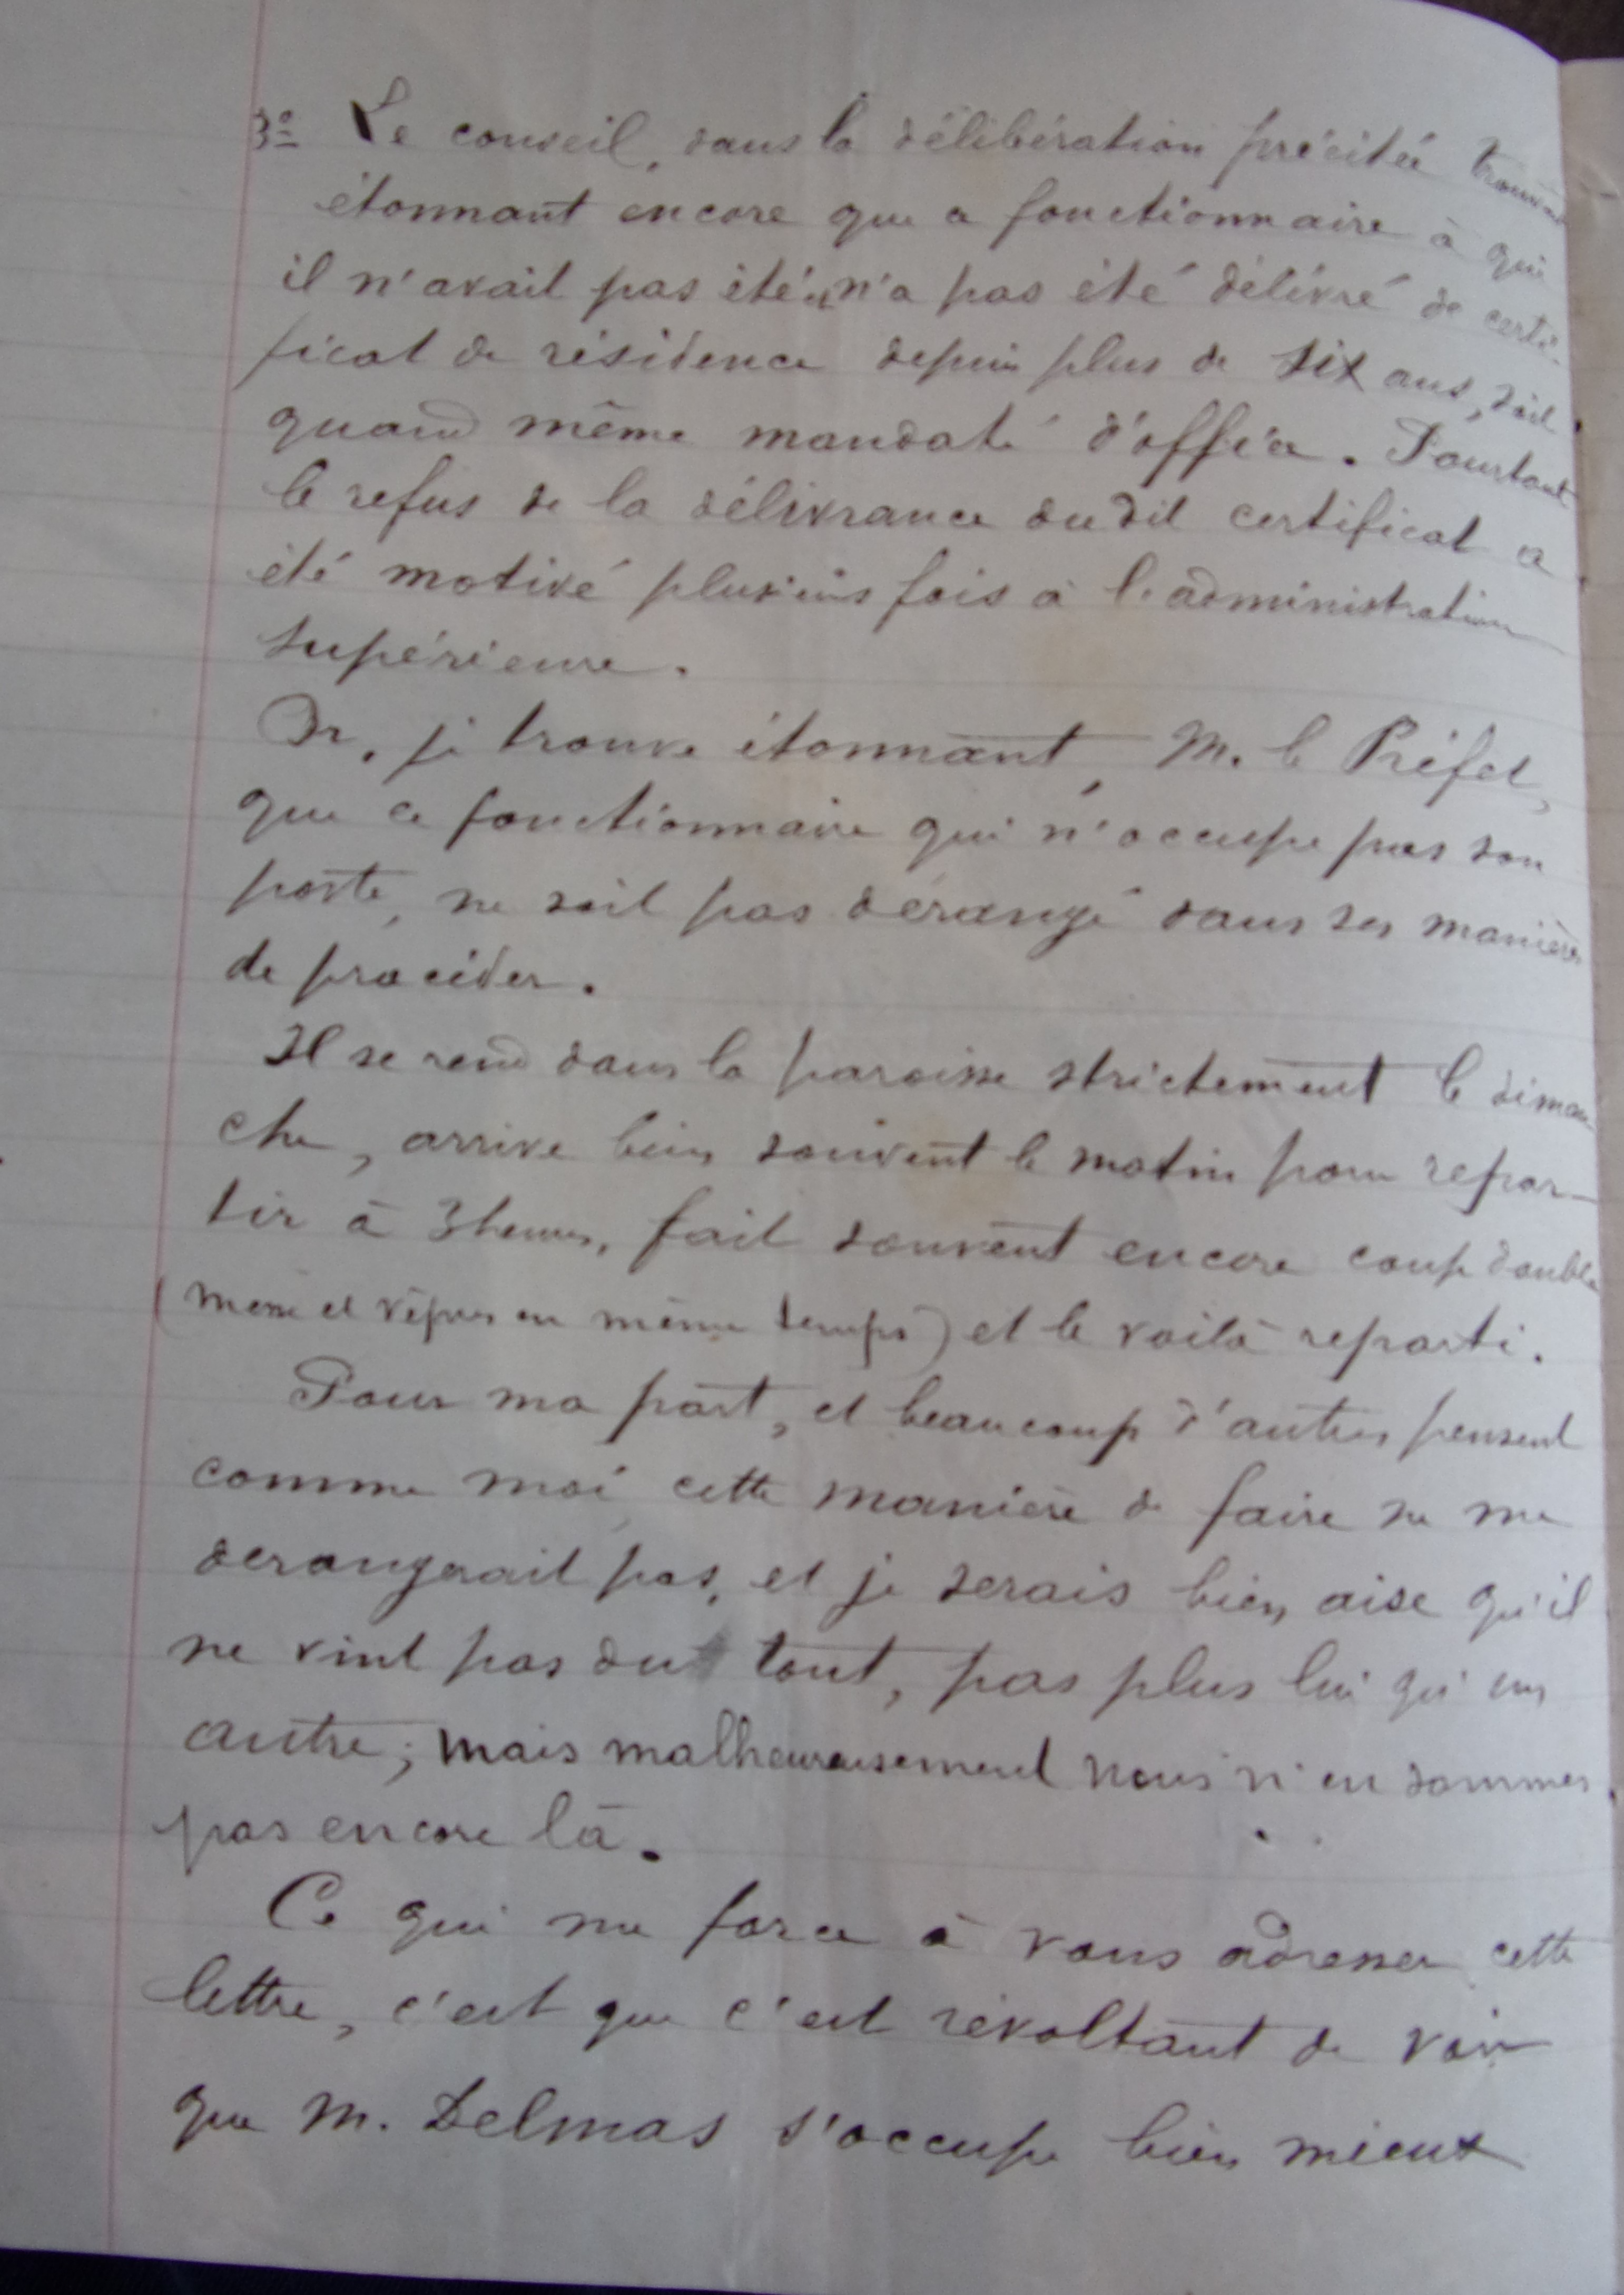 3º Le conseil, dans la délibération précitée trouvait
étonnant encore que ce fonctionnaire à qui
il n'avait pas été, n'a pas été délivré de certi-
ficat de résidence depuis plus de six ans, soit
quand même mandaté d'office. Pourtant
le refus de la délivrance dudit certificat a
été motivé plusieurs fois à l'administration
supérieure.
Or, je trouve étonnant, M. le Préfet,
que ce fonctionnaire qui n'occupe pas son
poste, ne soit pas dérangé dans ses manières
de procéder.
Il se rend dans la paroisse strictement le diman
che, arrive bien souvent le matin pour repar-
tir à 3 heures, fait souvent encore coup double
(messe et vêpres en même temps) et le voilà reparti.
Pour ma part, et beaucoup d'autres pensent
comme moi cette manière de faire ne me
derangerait pas, et je serais bien aise qu'il
ne vint pas du tout, pas plus lui qu'un
autre; mais malheureusement nous n'en sommes
pas encore là.
Ce qui me force à vous adresser cette
lettre, c'est que c'est révoltant de voir
que M. Delmas s'occupe bien mieux